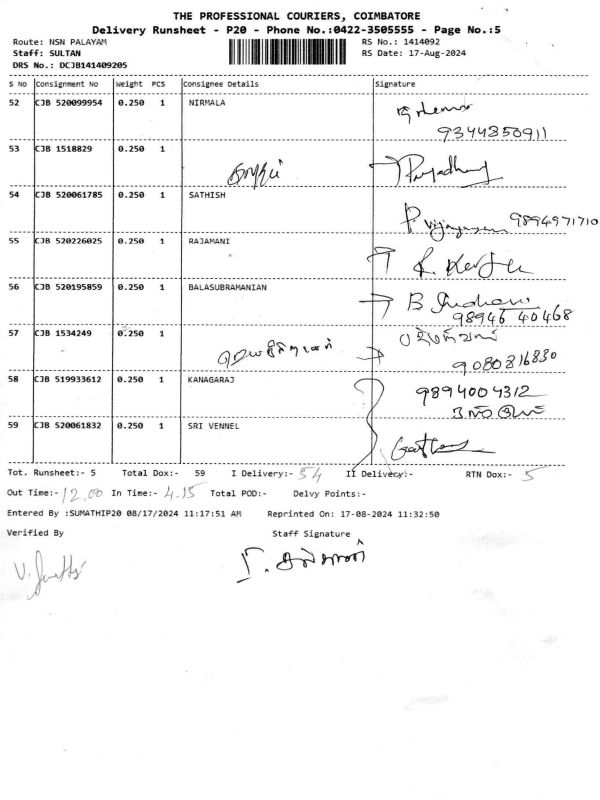 THE PROFESSIONAL COURIERS, COIMBATORE
Delivery Runsheet - P20 - Phone No.:0422-3505555 - Page No.:5
Route: NSN PALAYAM RS No.: 1414092
Staff: SULTAN RS Date: 17-Aug-2024
DRS No.: DCJB141409205
S No Consignment No Weight PCS Consignee Details Signature
52 CJB 520099954 0.250 1 NIRMALA
9344350911
53 CJB 1518829 0.250 1
54 CJB 520061785 0.250 1 SATHISH
P. 9894971710
55 CJB 520226025 0.250 1 RAJAMANI
56 CJB 520195859 0.250 1 BALASUBRAMANIAN
B
98946 40468
57 CJB 1534249 0.250 1
9080816830
58 CJB 519933612 0.250 1 KANAGARAJ
9894004312
59 CJB 520061832 0.250 1 SRI VENNEL
Tot. Runsheet:- 5 Total Dox:- 59 I Delivery:- 54 II Delivery:- RTN Dox:- 5
Out Time:- 12.00 In Time:- 4.15 Total POD:- Delvy Points:-
Entered By :SUMATHIP20 08/17/2024 11:17:51 AM Reprinted On: 17-08-2024 11:32:50
Verified By Staff Signature